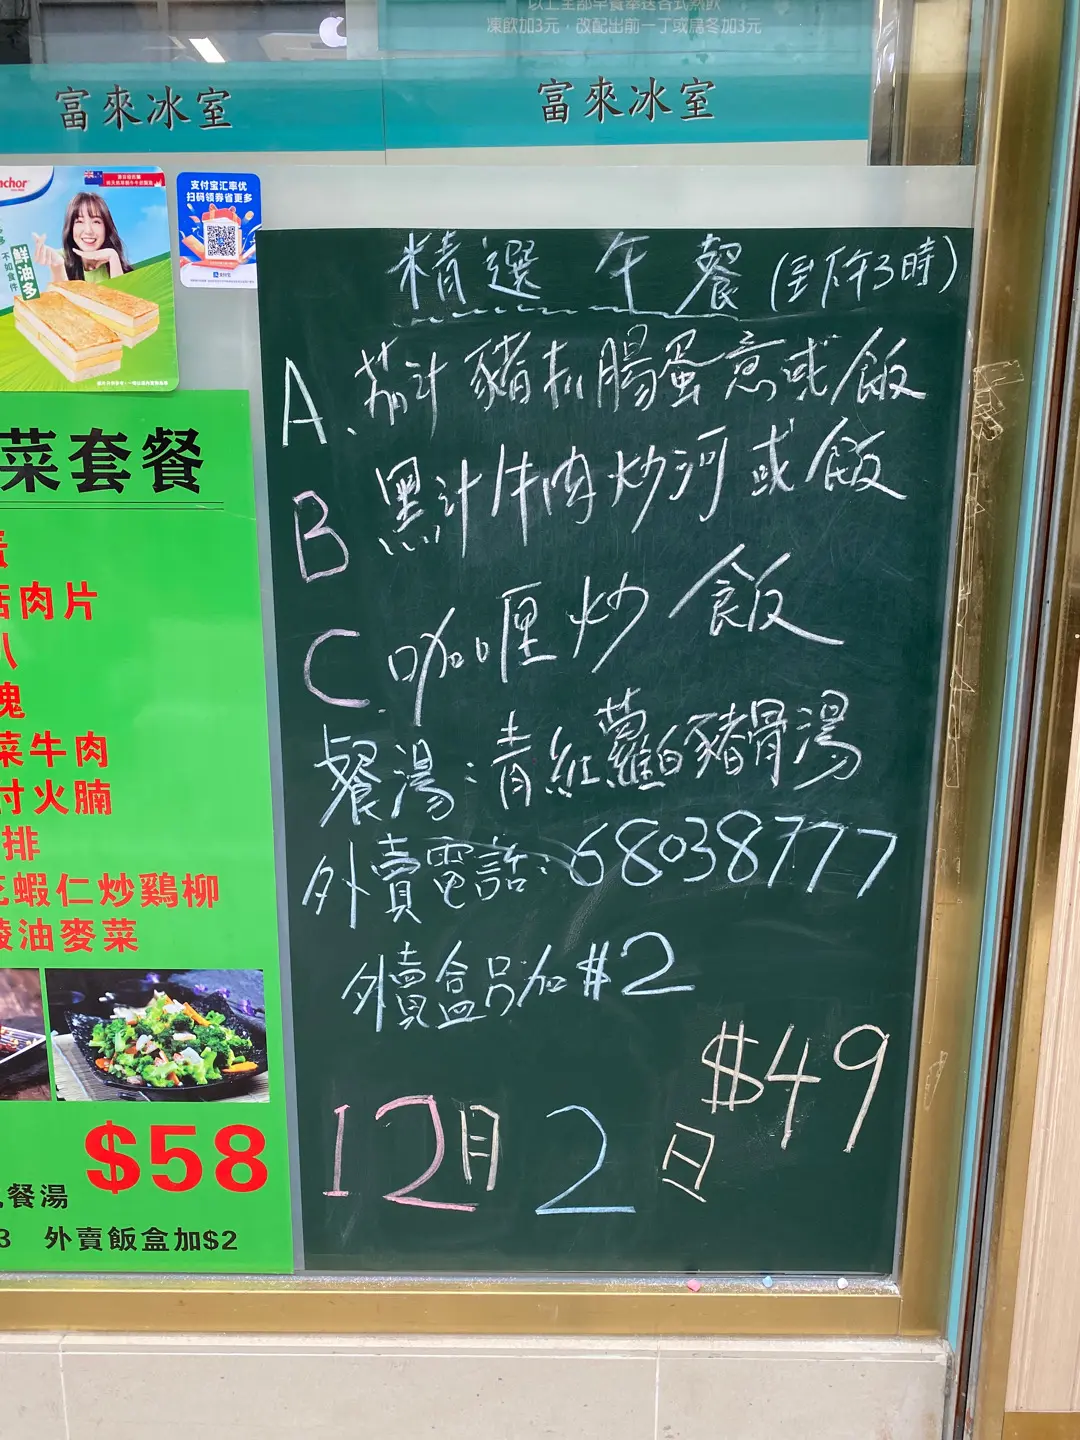 以上全部早餐奉送各式熱飲
凍飲加3元，改配出前一丁或烏冬加3元
富來冰室
富來冰室
nchor
鮮油多
不如食件
支付宝汇率优
扫码领券省更多
支付宝
菜套餐
肉片
菜牛肉
付火腩
排
蝦仁炒鷄柳
油麥菜
$58
餐湯
3 外賣飯盒加$2
精選午餐(到下午3時)
A、茄汁豬扒腸蛋意或飯
B 黑汁牛肉炒河或飯
C.咖喱炒飯
餐湯：青紅蘿白豬骨湯
外賣電話：68038777
外賣盒另加$2
$49
12月2日